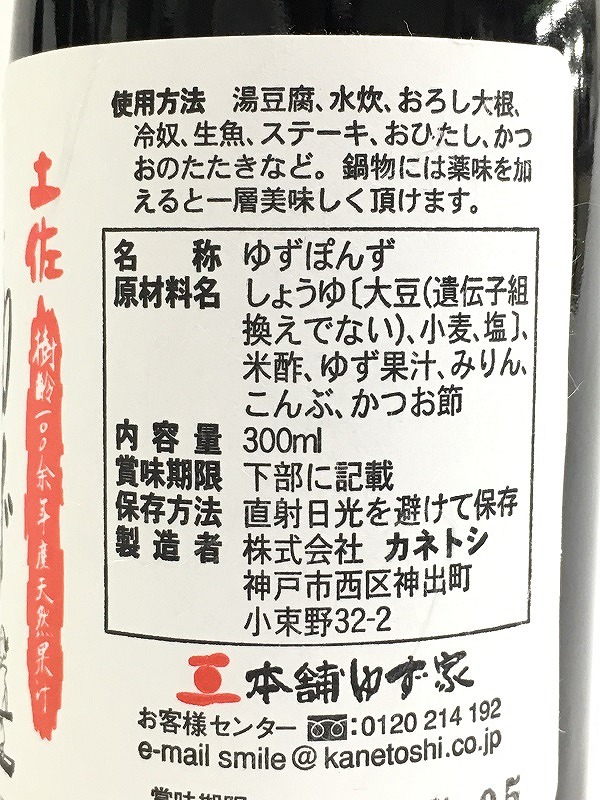 使用方法 湯豆腐、水炊、おろし大根、
冷奴、生魚、ステーキ、おひたし、かつ
おのたたきなど。鍋物には薬味を加
えると一層美味しく頂けます。
土佐
樹齢一〇〇余年産天然果汁
名称 ゆずぽんず
原材料名 しょうゆ〔大豆(遺伝子組
換えでない)、小麦、塩〕、
米酢、ゆず果汁、みりん、
こんぶ、かつお節
内容量 300ml
賞味期限 下部に記載
保存方法 直射日光を避けて保存
製造者 株式会社 カネトシ
神戸市西区神出町
小束野32-2
本舗ゆず家
お客様センター :0120 214 192
e-mail smile@kanetoshi.co.jp
賞味期限